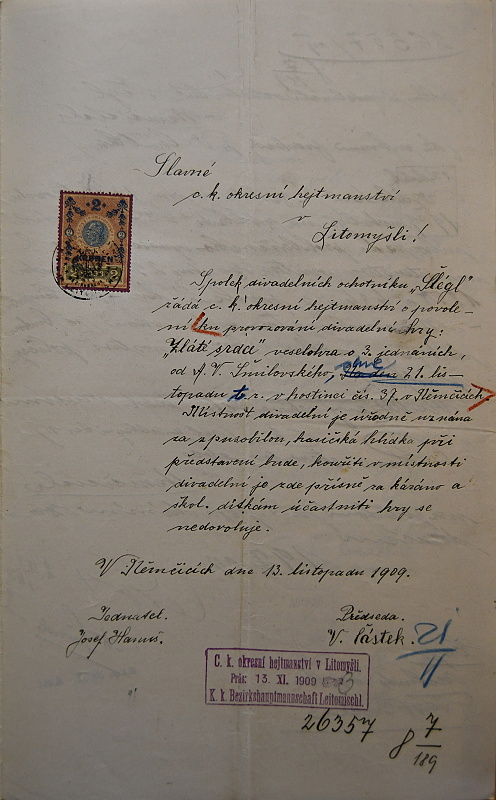 Slavné
c. k. okresní hejtmanství
v
Litomyšli!
2
Spolek divadelních ochotníku „Šlégl"
žádá c. k. okresní hejtmanství o povole-
ní ku provozování divadelní hry:
„Zlaté srdce" veselohra o 3. jednáních,
od A. V. Šmilovského, dne 21. lis-
topadu t. r. v hostinci čís. 37. v Němčicích
Místnost divadelní je úředně uznána
za spusobilou, hasičská hlídka při
představení bude, kouřiti v místnosti
divadelní je zde přísně za kázáno a
škol. dítkám účastniti hry se
nedovoluje.
V Němčicích dne 13. listopadu 1909.
Jednatel.
Josef Hanuš.
Předseda.
V. Částek.
21
11
C. k. okresní hejtmanství v Litomyšli.
Präs: 13. XI. 1909
K. k. Bezirkshauptmannschaft Leitomischl.
26357
8 7
189